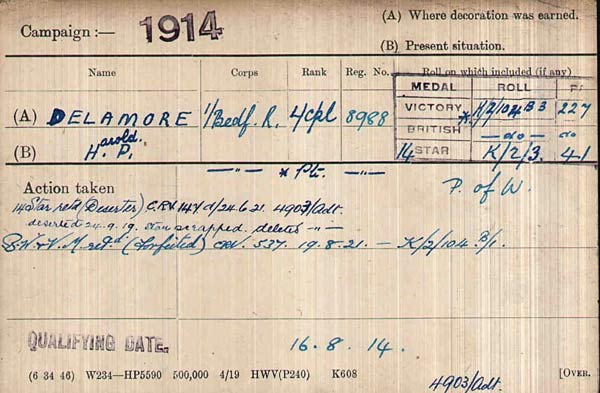 (A) Where decoration was earned.
Campaign :— 1914
(B) Present situation.
Name Corps Rank Reg. No. Roll on which included (if any)
MEDAL ROLL
(A) DELAMORE 1/Bedf. R. L/Cpl 8988 VICTORY * K/2/104 B3 227
BRITISH —do— do
(B) Harold. P. 14 STAR K/2/3. 41
—"— * Pte. —"—
Action taken P. of W.
14 Star retd (Deserter) CRV 147 d/24.6.21. 4903/Adt.
deserted 24.9.19. Star scrapped. deleted —"—
B.W & V.M. retd. (Forfeited) CRV. 537. 19.8.21. — K/2/104 B/1.
QUALIFYING DATE. 16.8.14.
(6 34 46) W234—HP5590 500,000 4/19 HWV(P240) K608
4903/Adt. [OVER.